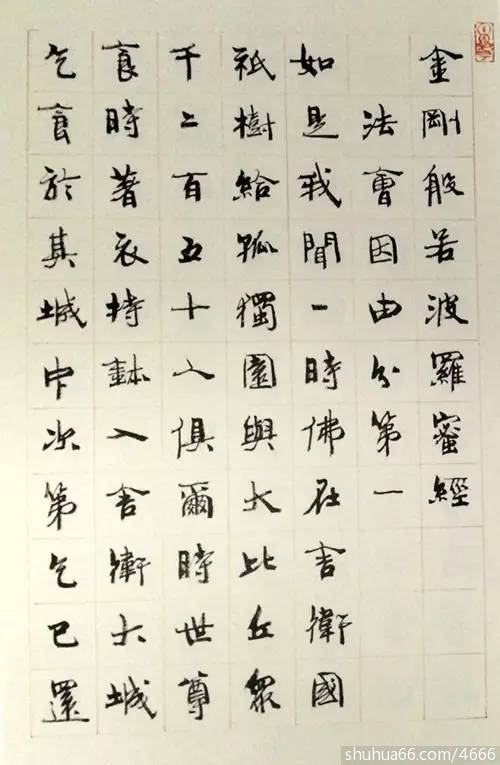 金剛般若波羅蜜經
法會因由分第一
如是我聞一時佛在舍衛國
祇樹給孤獨園與大比丘眾
千二百五十人俱爾時世尊
食時著衣持鉢入舍衛大城
乞食於其城中次第乞已還
shuhua66.com/4666